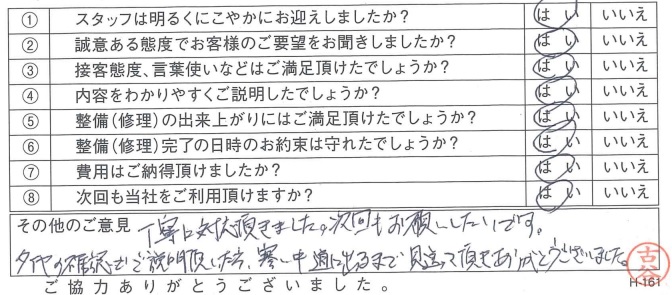 ① スタッフは明るくにこやかにお迎えしましたか? はい いいえ
② 誠意ある態度でお客様のご要望をお聞きしましたか? はい いいえ
③ 接客態度、言葉使いなどはご満足頂けたでしょうか? はい いいえ
④ 内容をわかりやすくご説明したでしょうか? はい いいえ
⑤ 整備(修理)の出来上がりにはご満足頂けたでしょうか? はい いいえ
⑥ 整備(修理)完了の日時のお約束は守れたでしょうか? はい いいえ
⑦ 費用はご納得頂けましたか? はい いいえ
⑧ 次回も当社をご利用頂けますか? はい いいえ
その他のご意見 丁寧に対応頂きました。次回もお願いしたいです。
タイヤの確認までご説明頂した方、寒い中通に出るまで見送って頂きありがとうございました。
古谷
ご協力ありがとうございました。 H-161